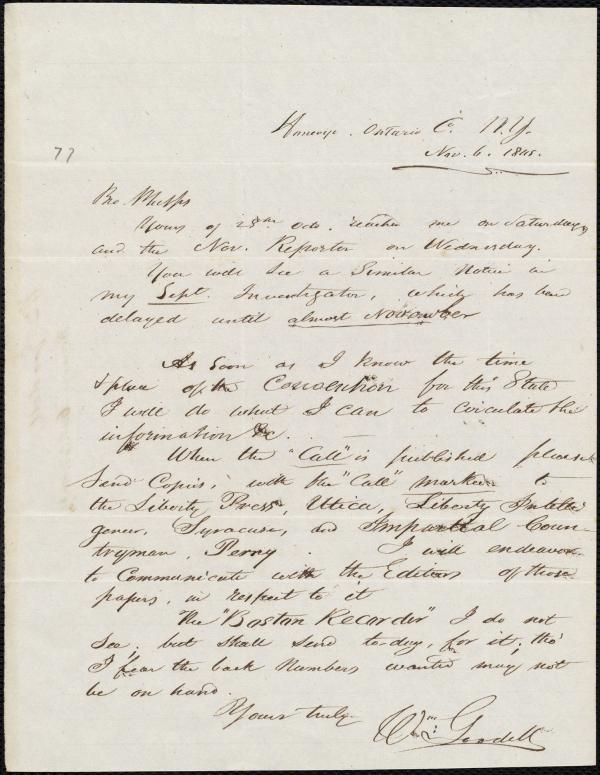 Honeoye. Ontario Co. N.Y.
Nov. 6. 1845.
77
Bro. Phelps
Yours of 25th Oct. reached me on Saturday
and the Nov. Reporter on Wednesday.
You will see a Similar Notice in
my Sept. Investigator, which has been
delayed until almost November
As soon as I know the time
& place of the Convention for this State
I will do what I can to circulate the
information &c.
When the "Call" is published please
Send Copies, with the "Call" marked to
the Liberty Press, Utica, Liberty Intelli
gencer, Syracuse, and Impartial Coun-
tryman, Perry. I will endeavor
to Communicate with the Editors of those
papers, in respect to it
The "Boston Recorder" I do not
see. but shall send to-day, for it; tho'
I fear the back Numbers wanted may not
be on hand.
Yours truly
Wm: Goodell